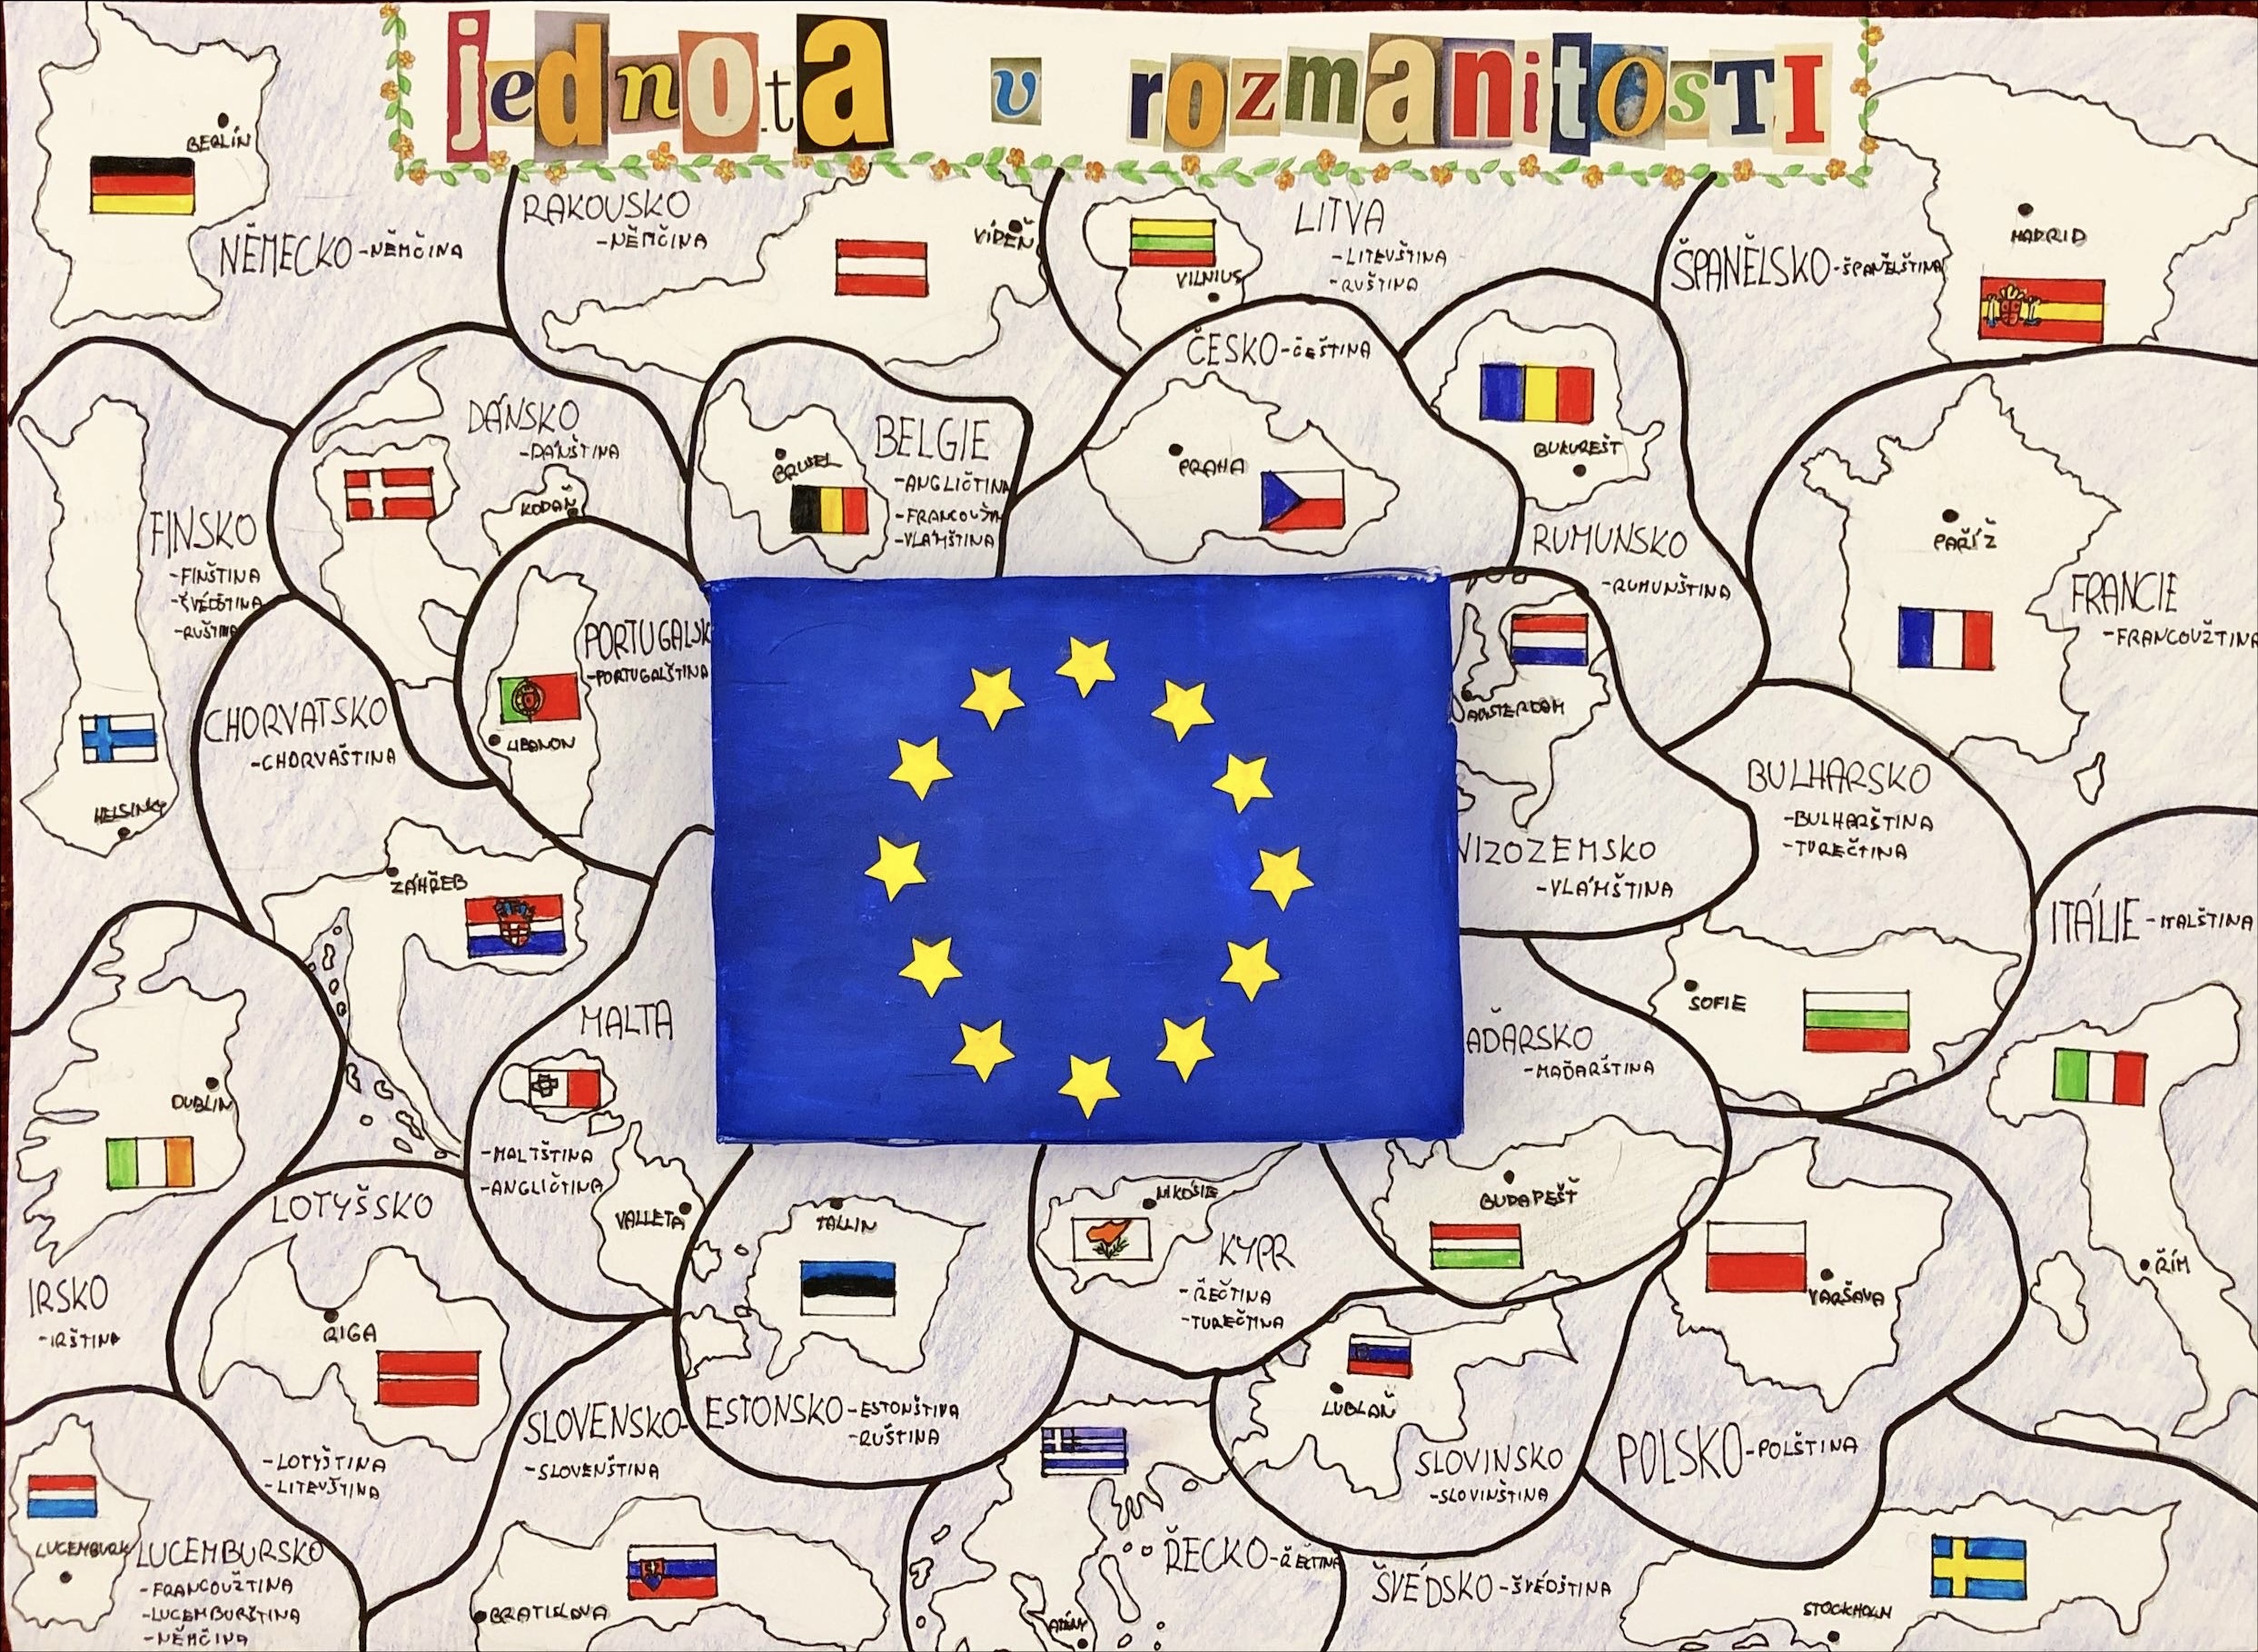 jednota v rozmanitosti
BERLÍN
NĚMECKO -NĚMČINA
RAKOUSKO
-NĚMČINA
VÍDEŇ
LITVA
-LITEVŠTINA
-RUŠTINA
VILNIUS
ŠPANĚLSKO -ŠPANĚLŠTINA
MADRID
FINSKO
-FINŠTINA
-ŠVÉDŠTINA
-RUŠTINA
HELSINKY
DÁNSKO
-DÁNŠTINA
KODAŇ
BELGIE
-ANGLIČTINA
-FRANCOUŽ
-VLÁMŠTINA
BRUSEL
ČESKO -ČEŠTINA
PRAHA
BUKUREŠT
RUMUNSKO
-RUMUNŠTINA
PAŘÍŽ
FRANCIE
-FRANCOUŽTINA
CHORVATSKO
-CHORVAŠTINA
ZÁHŘEB
PORTUGALSK
-PORTUGALŠTINA
LIBANON
AMSTERDAM
NIZOZEMSKO
-VLÁMŠTINA
BULHARSKO
-BULHARŠTINA
-TUREČTINA
SOFIE
ITÁLIE -ITALŠTINA
ŘÍM
DUBLIN
IRSKO
-IRŠTINA
MALTA
-MALTŠTINA
-ANGLIČTINA
VALLETA
AĎARSKO
-MAĎARŠTINA
BUDAPEŠŤ
LOTYŠSKO
RIGA
-LOTYŠTINA
-LITEVŠTINA
TALLIN
ESTONSKO -ESTONŠTINA
-RUŠTINA
NIKÓSIE
KYPR
-ŘEČTINA
-TUREČTINA
VARŠAVA
POLSKO -POLŠTINA
LUBLAŇ
SLOVINSKO
-SLOVINŠTINA
SLOVENSKO-
-SLOVENŠTINA
BRATISLAVA
LUCEMBURK
LUCEMBURSKO
-FRANCOUŽTINA
-LUCEMBURŠTINA
-NĚMČINA
ŘECKO -ŘEČTINA
ATÉNY
ŠVÉDSKO -ŠVÉDŠTINA
STOCKHOLM